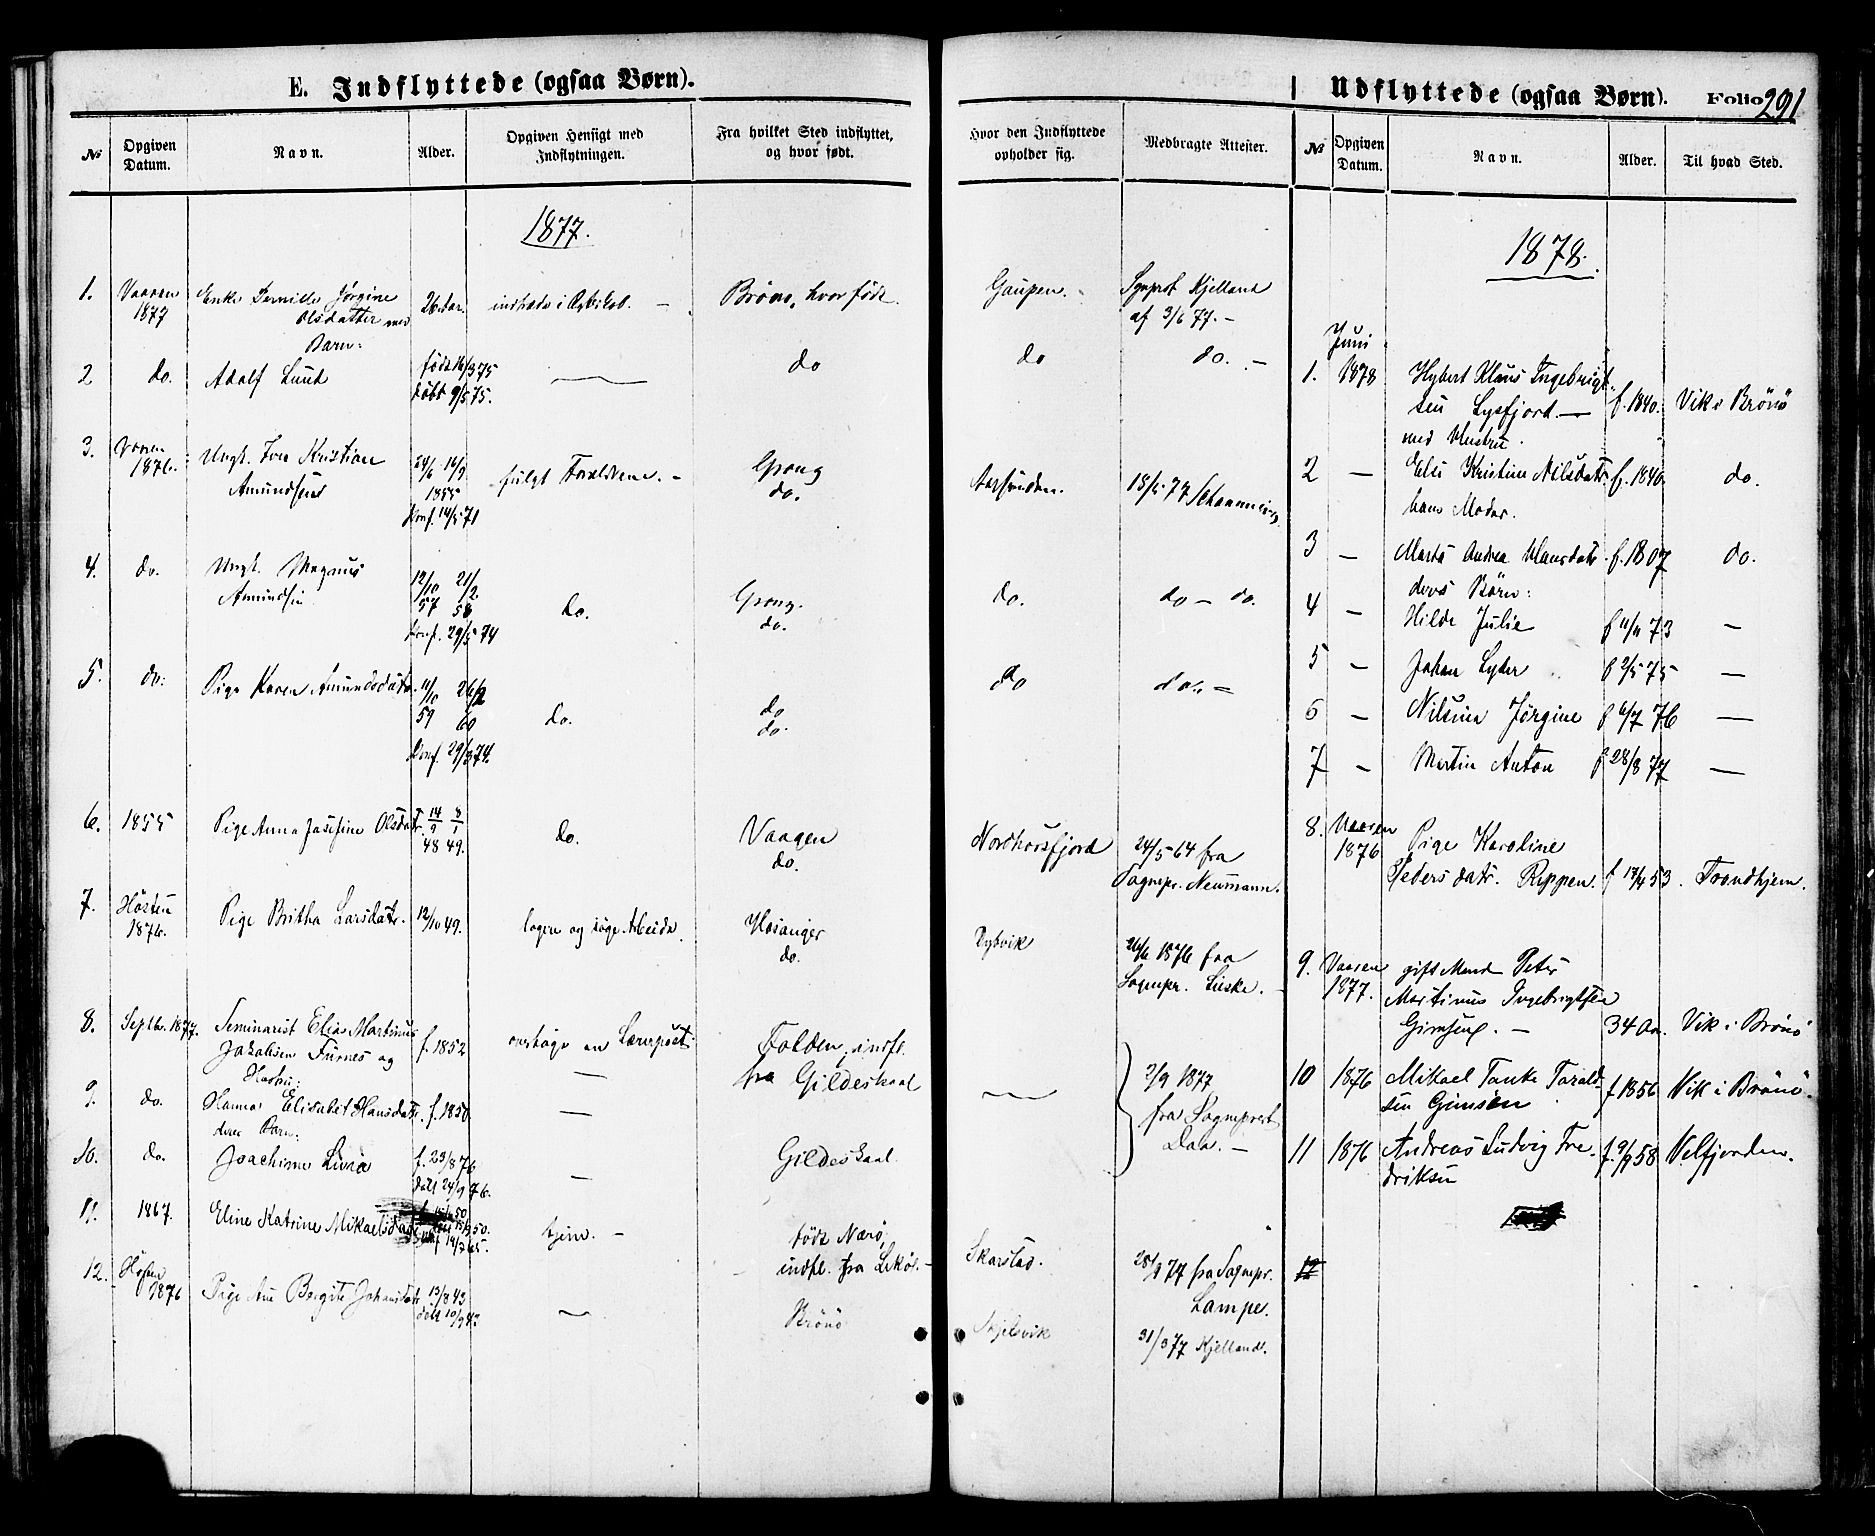 E. Indflyttede (ogsaa Børn).
№
Opgiven Datum.
Navn.
Alder.
Opgiven Hensigt med Indflytningen.
Fra hvilket Sted indflyttet, og hvor født.
Hvor den Indflyttede opholder sig.
Medbragte Attester.
1877.
1. Vaaren 1877 Enke Pernille Jørgine Olsdatter med Barn: 26 Aar. Brønø, hvor født. Gaupen. Sgnprst Kjelland af 3/6 77. –
2 do. Adolf Lund født 16/3 75 døbt 9/5 75. — do do do. –
3. Vaaren 1876. Ungk. Kristian Amundsen 24/6 14/9 1855 Konf. 14/5 71 fulgt Forældrene. – Grong do. 15/5 77
4. do. Ungk. Magnus Amundsen 12/10 57 21/2 58 Konf. 29/5 74 do. Grong. do. do. do – do.
5. do. Pige Karen Amundsdatr. 11/10 59 26/2 60 Konf. 29/5 74. do. do do. do do. –
6. 1855 Pige Anna Josefine Olsdatr. 14/9 48 8/1 49. do. Vaagen do. Nordhorsfjord 24/5 64 fra Sognepr. Neumann.
7. Høsten 1876. Pige Britha Larsdatr. 12/10 49. logere og søge Arbeide. Hosanger do. Dybvik 26/6 1876 fra Sognepr.
8. Septbr. 1877. Seminarist Elias Martinus Jakobsen Furnes og Hustru: f. 1852 overtage en Lærerpost Folden, indfl. fra Gildeskaal — 3/9 1877 fra Sogneprest Daa. –
9. do. Hanna Elisabet Hansdatr. deres Barn: f. 1850 —
10. do. Joachime f. 23/8 76 døbt 24/9 76. — Gildeskaal
11. 1867. Eline Katrine Mikaelsdatr. tjene. – født Nærø, indfl. fra Lekø. – Skarstad. 28/9 77 fra Sognepr. Lampe.
12. Høsten 1876 Pige Ane Bergite Johansdatr 13/8 43 døbt 10/9 43 — Brønø Skjelsvik 31/3 77 Kjelland.
Udflyttede (ogsaa Børn). Folio 291
№
Opgiven Datum.
Navn.
Alder.
Til hvad Sted.
1878.
1. Juni 1878 Hybert Klaus Ingebrigtsen Lysfjord. — med Hustru. f. 1840. Vik i Brønø
2 — Else Kristine Nilsdatr. hans Moder. f. 1840. do.
3 — Marta Andrea Hansdatr. deres Børn: f. 1807 do.
4 – Hilde Julie f 11/11 73 –
5 – Johan Lyder f 2/5 75 —
6 – Nilsine Jørgine f 6/7 76 —
7 – Martin Anton f 28/8 77 —
8. Vaaren 1876 Pige Karoline Pedersdatr. Rippen. 53. Trondhjem.
9. Vaaren 1877. gift Mand Peter Martinus Ingebrigtsen Gimsen. – 34 Aar. Vik i Brønø
10 1876 Mikael Tanke Taraldsen Gimsen f 1856 Vik i Brønø.
11 1876 Andreas Ludvig Fredriksen f. 9/9 58 Velfjorden.
12